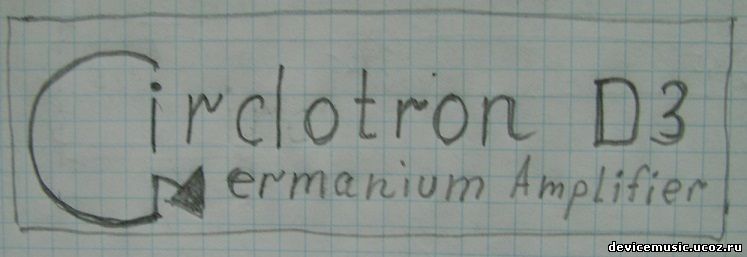 Circlotron D3
Germanium Amplifier
devicemusic.ucoz.ru